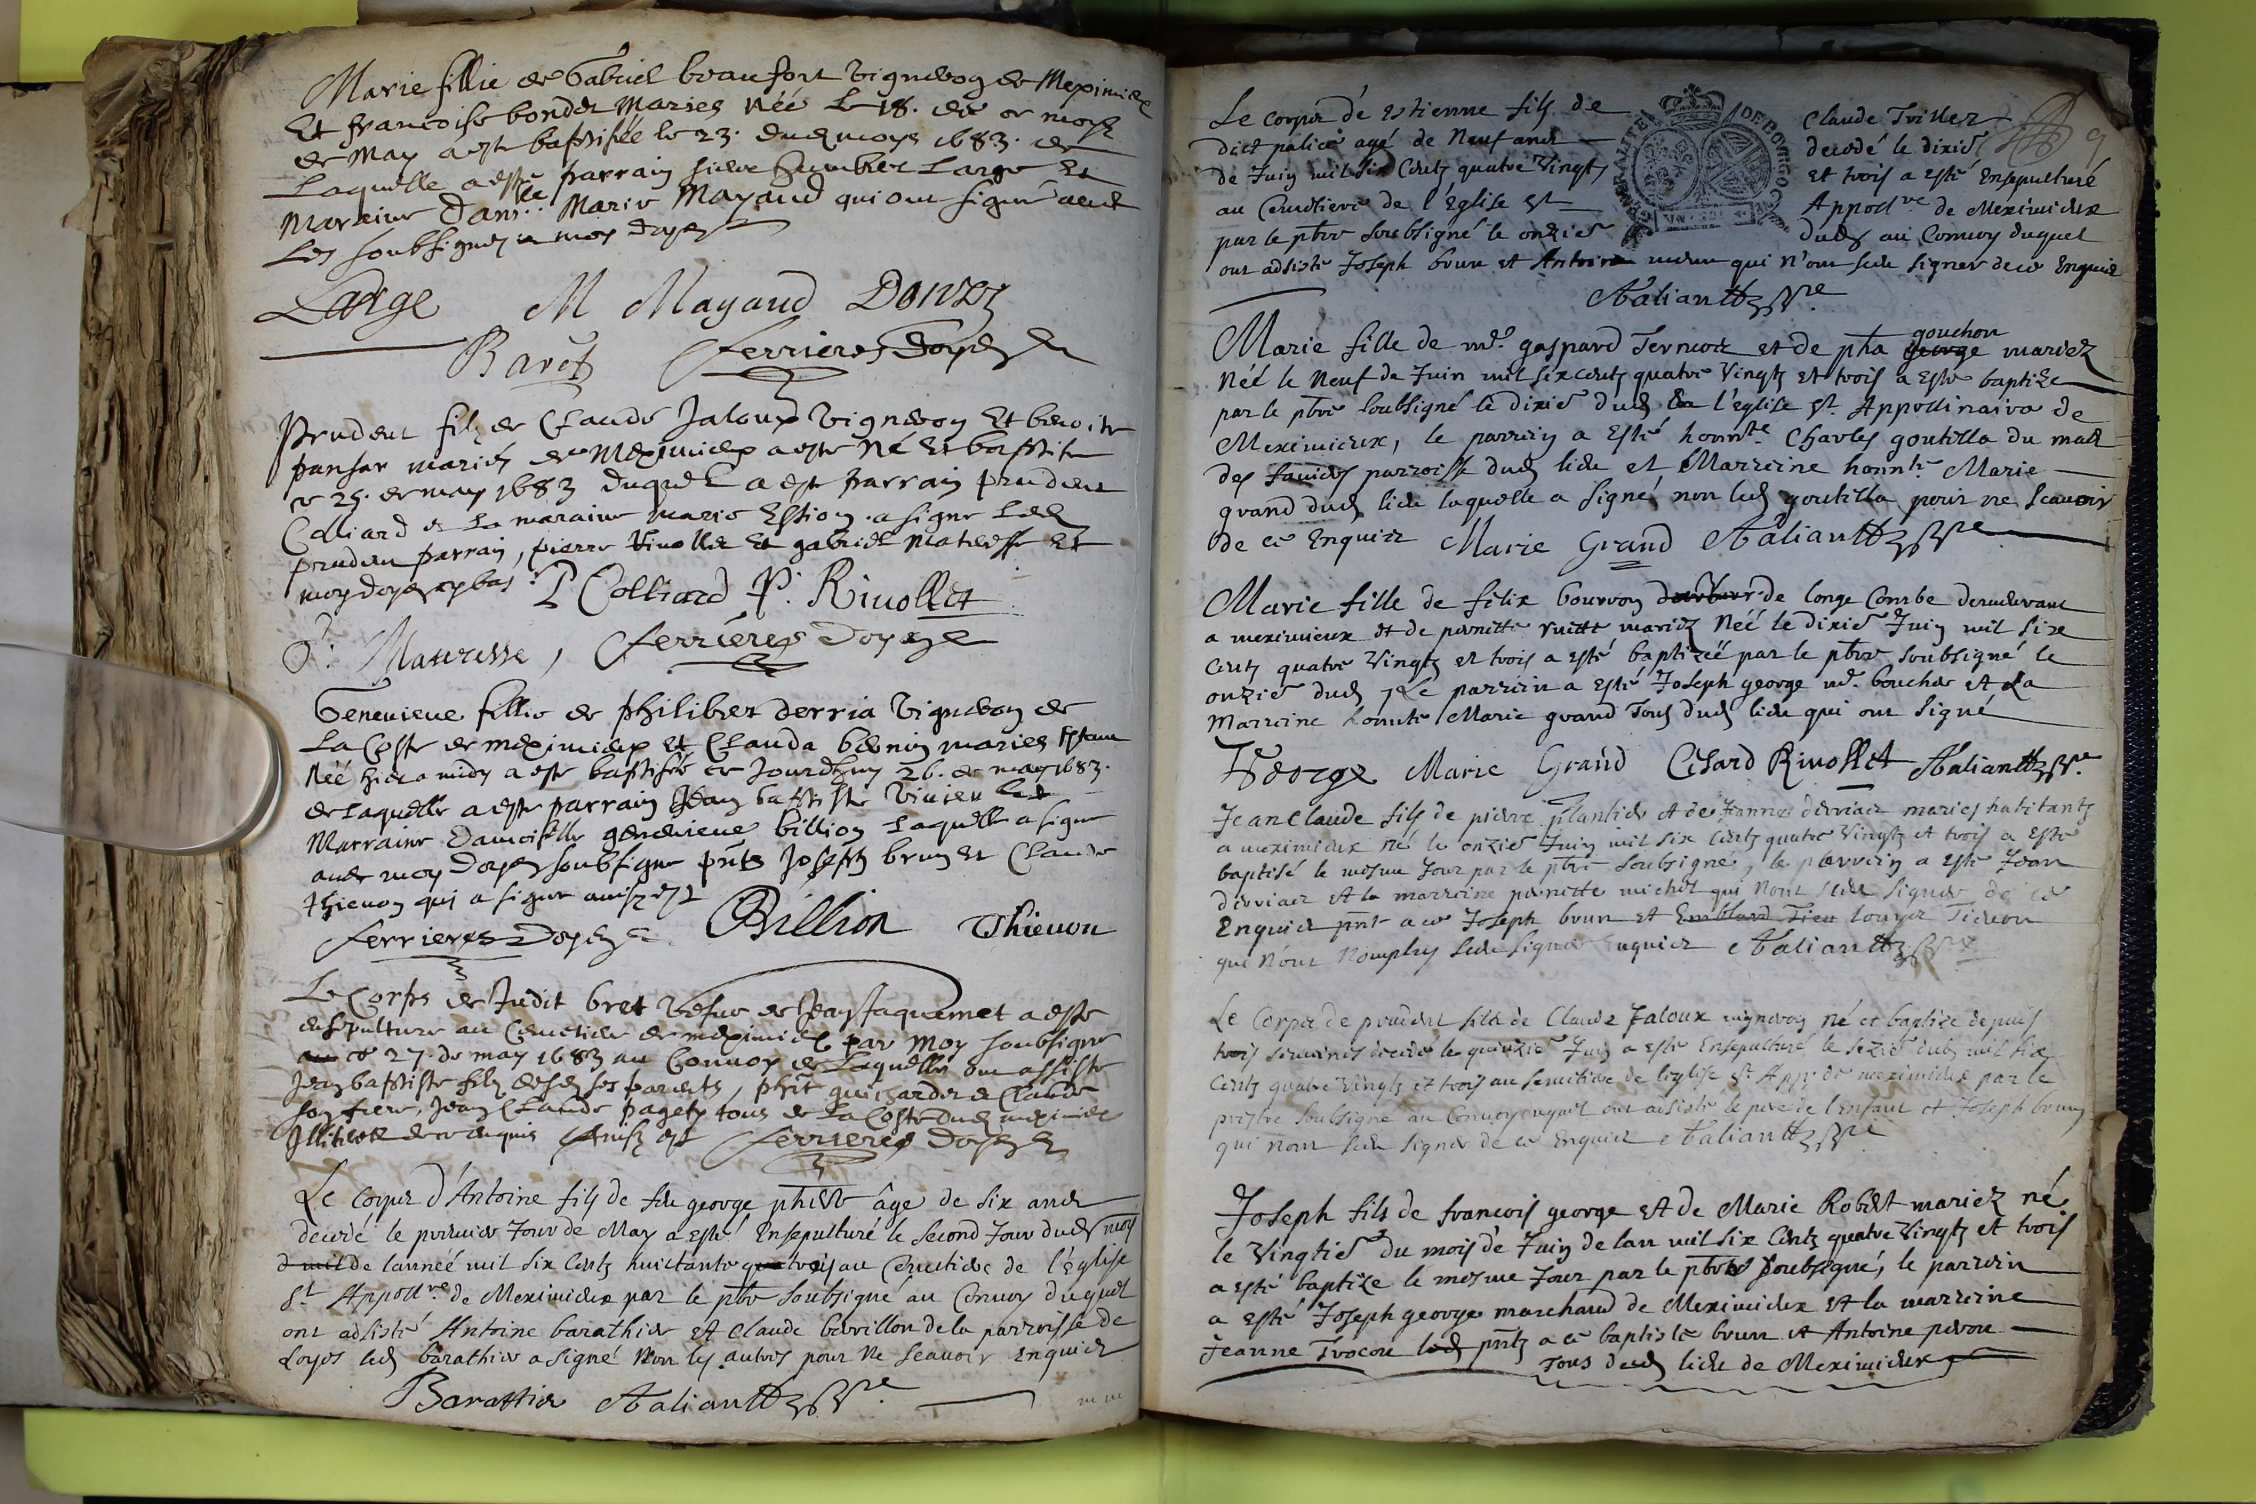 Marie fillie de Gabriel beaufort vigneron de Meximieux
Et francoise bonder Mariez Néé Le 18. du moys
de May a este baptisée le 23. dud moys 1683. de
Laquelle a esté parrain sieur humbert Large Et
Marraine dam.lle Marie Mayaud qui ont signé avec
Les soubsignez moy doyen
Large M Mayaud Donzy
Baret Ferrieres doyen
Prudent filz de Claude Jaloux vigneron Et benoite
pansar mariés de Meximieux a este Né Et baptise
ce 25. de may 1683 duquel a este parrain prudent
Colliard et La maraine marie Estion. a signe Led
prudent parrain, pierre Rivollet Et gabriel Matresse Et
moy doyen cy bas. P Colliard P. Rivollet
Matresse, Ferriéres Doyen
Genevieve fillie de philibert derria vigneron de
La Coste de meximieux Et Clauda benin mariez
Néé hier a midy a este baptisée ce Jourdhuy 26. de may 1683.
de Laquelle a este parrain Jean baptiste Vivien Et
Marraine damoiselle genevieve billion Laquelle a signe
avec moy doyen soubsigne pnts Joseph brun Et Claude
thievon qui a signe
Ferrieres Doyen Billion Thievon
Le Corps de Judit bret vefve de Jean Jaquemet a este
ensepulture au Cimetiere de meximieux par Moy soubsigne
ce 27. de may 1683 au Convoy de Laquelle ont assisté
Jean baptiste filz ses parents, phit guichard et Claude
son frere, Jean Claude paget tous de La Coste dud meximieux
Illiteres de ce enquis Ferrieres Doyen
Le corps d'Antoine fils de feu george âgé de six ans
decedé le premier Jour de May a esté Ensepulturé le second Jour dud mois
de lanneé mil six Centz huictante trois au Cemetiere de l'église
St Appoll.re de Meximieux par le pbre soubsigné au Convoy duquel
ont adsisté Antoine barathier et Claude bevrillon de la parroisse de
Loyes led barathier a signé Non les autres pour Ne scavoir Enquis
Barattier
Le corps de Estienne fils de Claude Trillet
dict palice agé de Neuf ans decedé le dixie
de Juin mil six Centz quatre vingtz et trois a esté Ensepulturé
au Cemetiere de l'église St Appoll.re de Meximieux
par le pbre soubsigné le onzie dud au Convoy duquel
ont adsisté Joseph brun et Antoine qui n'ont sceu signer de ce Enquis
Marie fille de me. gaspard et de pha gouchon mariez
Néé le Neuf de Juin mil six centz quatre vingtz et trois a este baptize
par le pbre soubsigné le dixie dud En l'eglise St. Appollinaire de
Meximieux, le parrein a esté honnte Charles goutilla du mas
des parroisse dud lieu et Marreine honnte Marie
grand dud lieu laquelle a signé, non led goutilla pour ne scavoir
de ce Enquis Marie Grand
Marie fille de felix bourron de longe Combe demeurant
a meximieux et de pernette mariez Néé le dixie Juin mil six
Centz quatre vingtz et trois a esté baptizéé par le pbre soubsigné le
onzie dud, Le parrein a esté Joseph george me. boucher et La
Marreine honnte Marie grand Tous dud lieu qui ont signé
JGeorge Marie Grand Cesard Rivollet
Jean Claude fils de pierre plantier et de Jeanne derriaz mariez habitantz
a meximieux né le onzie Juin mil six Centz quatre vingtz et trois a esté
baptisé le mesme Jour par le pbre soubsigné, le parrein a esté Jean
derriaz et la marreine pernette michel qui n'ont sceu signer de ce
Enquis pnt a ce Joseph brun et
qui n'ont Nonplus sceu signer enquis
Le Corps de prudent fils de Claude Jaloux vigneron né et baptize depuis
trois semaines decedé le quinzie Juin a esté Ensepulturé le sezie dud mil six
Centz quatre vingtz et trois au semetiere de l'eglise St App.re de meximieux par le
prestre soubsigné au Convoy duquel ont adsisté le pere de l'enfant et Joseph brun
qui n'ont sceu signer de ce Enquis
Joseph fils de francois george et de Marie Robert mariez né
le vingtie du mois de Juin de lan mil six Centz quatre vingtz et trois
a esté baptize le mesme Jour par le pbre soubsigné, le parrein
a esté Joseph george marchand de Meximieux et la marreine
Jeanne Trocon pntz a ce baptiste brun et Antoine peron
Tous dud lieu de Meximieux